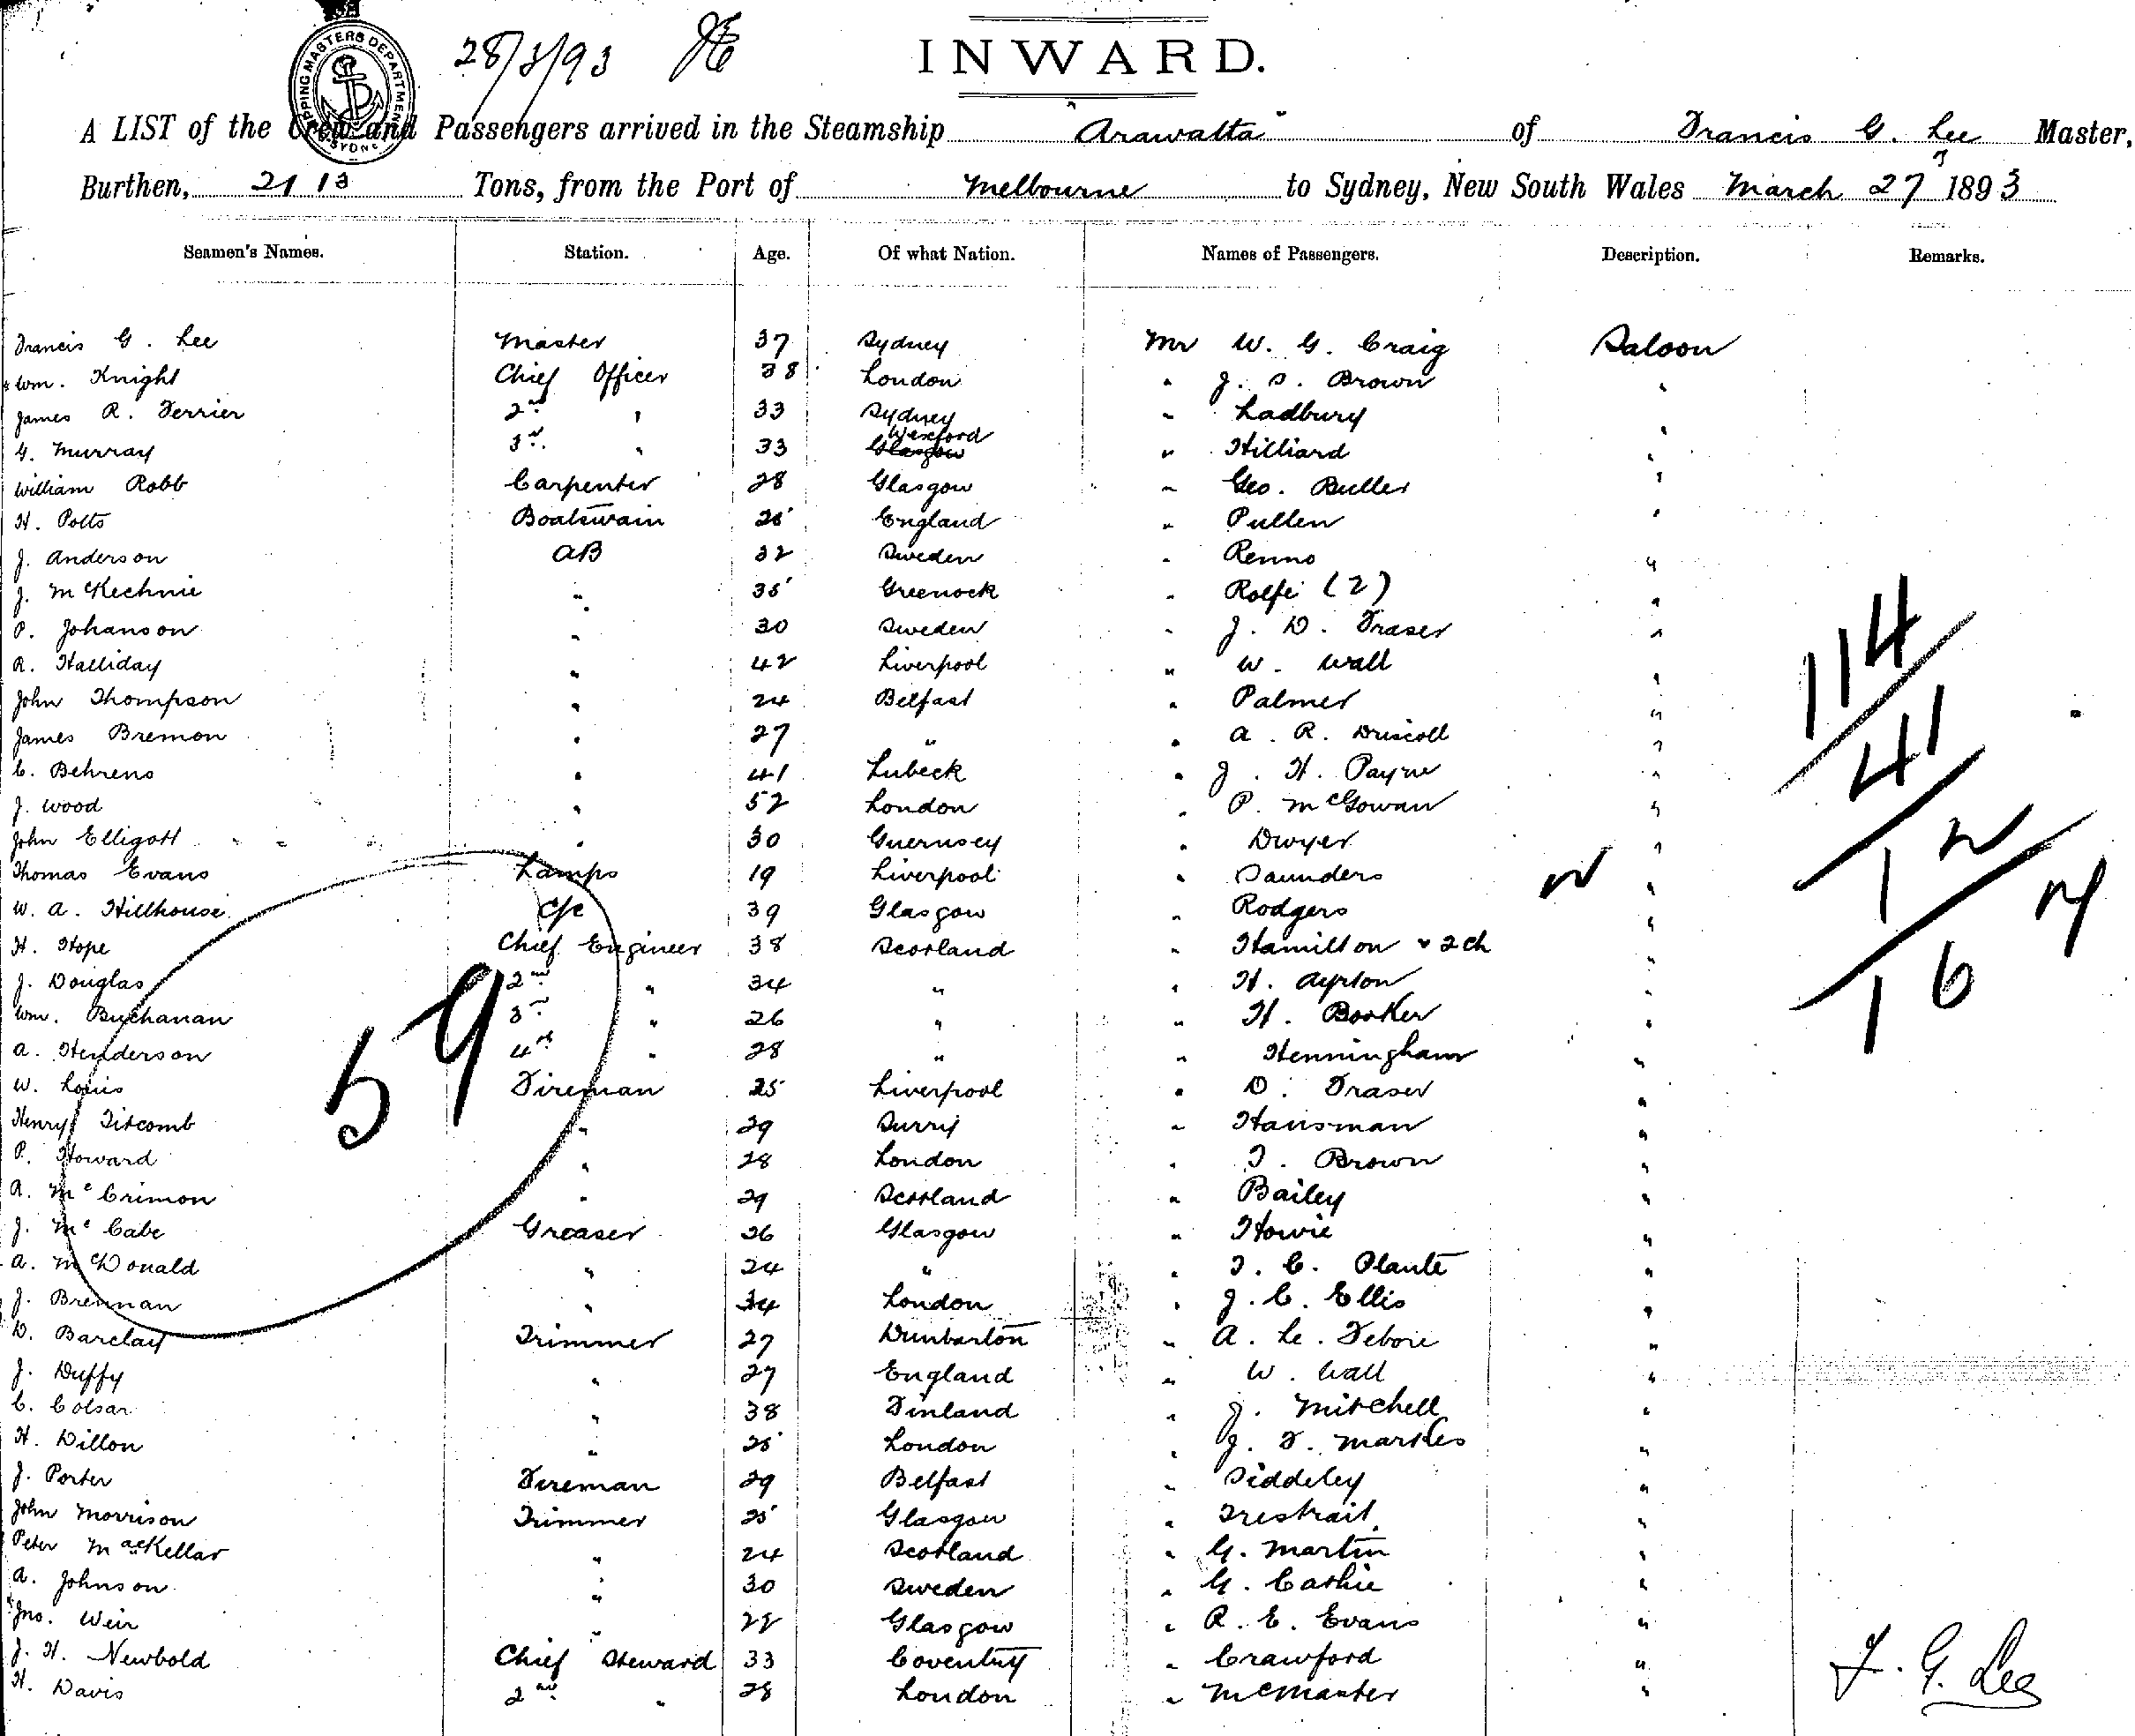 28/3/93
INWARD.
SHIPPING MASTERS DEPARTMENT SYDNEY
A LIST of the Crew and Passengers arrived in the Steamship "Arawatta" of Francis G. Lee Master,
Burthen, 2113 Tons, from the Port of Melbourne to Sydney, New South Wales March 27 1893
Seamen's Names. Station. Age. Of what Nation. Names of Passengers. Description. Remarks.
Francis G. Lee Master 37 Sydney Mr W. G. Craig Saloon
Wm. Knight Chief Officer 38 London " J. S. Brown "
James R. Ferrier 2nd " 33 Sydney " Ladbury "
G. Murray 3rd " 33 Wexford Glasgow " Hilliard "
William Robb Carpenter 28 Glasgow " Geo. Buller "
H. Potts Boatswain 25 England " Pullen "
J. Anderson AB 32 Sweden " Renno "
J. McKechnie " 35 Greenock " Rolfe (2) "
P. Johanson " 30 Sweden " J. D. Fraser "
R. Halliday " 42 Liverpool " W. Wall "
John Thompson " 24 Belfast " Palmer "
James Bremon " 27 " " A. R. Driscoll "
C. Behrens " 41 Lubeck " J. H. Payne "
J. Wood " 52 London " P. McGowan "
John Elligott " 30 Guernsey " Dwyer "
Thomas Evans Lamps 19 Liverpool " Saunders "
W. A. Hillhouse C/c 39 Glasgow " Rodgers "
H. Hope Chief Engineer 38 Scotland " Hamilton & 2 ch "
J. Douglas 2nd " 34 " " H. Ayrton "
Wm. Buchanan 3rd " 26 " " H. Booker "
A. Henderson 4th " 28 " " Henningham "
W. Louis Fireman 25 Liverpool " D. Fraser "
Henry Titcomb " 29 Surry " Hansman "
P. Howard " 28 London " T. Brown "
A. McCrimon " 29 Scotland " Bailey "
J. McCabe Greaser 26 Glasgow " Howie "
A. McDonald " 24 " " T. C. Plante "
J. Brennan " 34 London " J. C. Ellis "
D. Barclay Trimmer 27 Dunbarton " A. Le. Febore "
J. Duffy " 27 England " W. Wall "
C. Colsar " 38 Finland " J. Mitchell "
H. Dillon " 25 London " J. F. Markes "
J. Porter Fireman 29 Belfast " Siddeley "
John Morrison Trimmer 25 Glasgow " Trestrait "
Peter MacKellar " 24 Scotland " G. Martin "
A. Johnson " 30 Sweden " G. Cathie "
Jno. Weir " 22 Glasgow " R. E. Evans "
J. H. Newbold Chief Steward 33 Coventry " Crawford "
H. Davis 2nd " 28 London " McMaster "
59
114
41
12
16
F. G. Lee